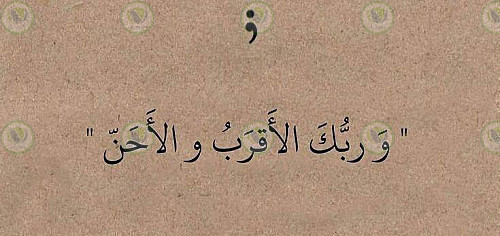 ؛
" وَ ربُّكَ الأَقرَبُ و الأَحَنّ "